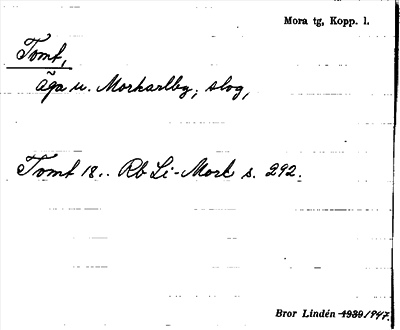 Mora tg, Kopp. l.
Tomt,
äga u. Morkarlby, slog,
Tomt 18.. Rb Li-Mork s. 292.
Bror Lindén 1939/1947.